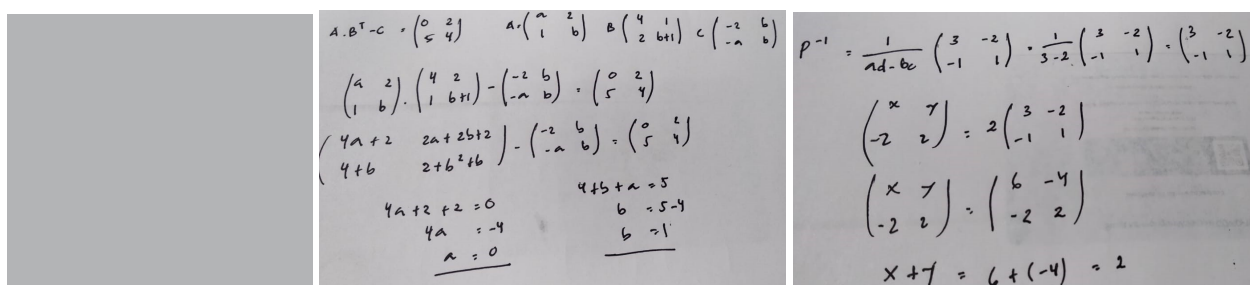 A.Bᵀ-C = (0 2 / 5 4) A = (a 2 / 1 b) B (4 1 / 2 b+1) C (-2 b / -a b)
(a 2 / 1 b) . (4 2 / 1 b+1) - (-2 b / -a b) = (0 2 / 5 4)
(4a+2 2a+2b+2 / 4+b 2+b²+b) - (-2 b / -a b) = (0 2 / 5 4)
4a+2+2 = 0
4a = -4
a = 0
4+b+a = 5
b = 5-4
b = 1
P⁻¹ = 1/ad-bc (3 -2 / -1 1) = 1/3-2 (3 -2 / -1 1) = (3 -2 / -1 1)
(x y / -2 2) = 2 (3 -2 / -1 1)
(x y / -2 2) = (6 -4 / -2 2)
x+y = 6+(-4) = 2